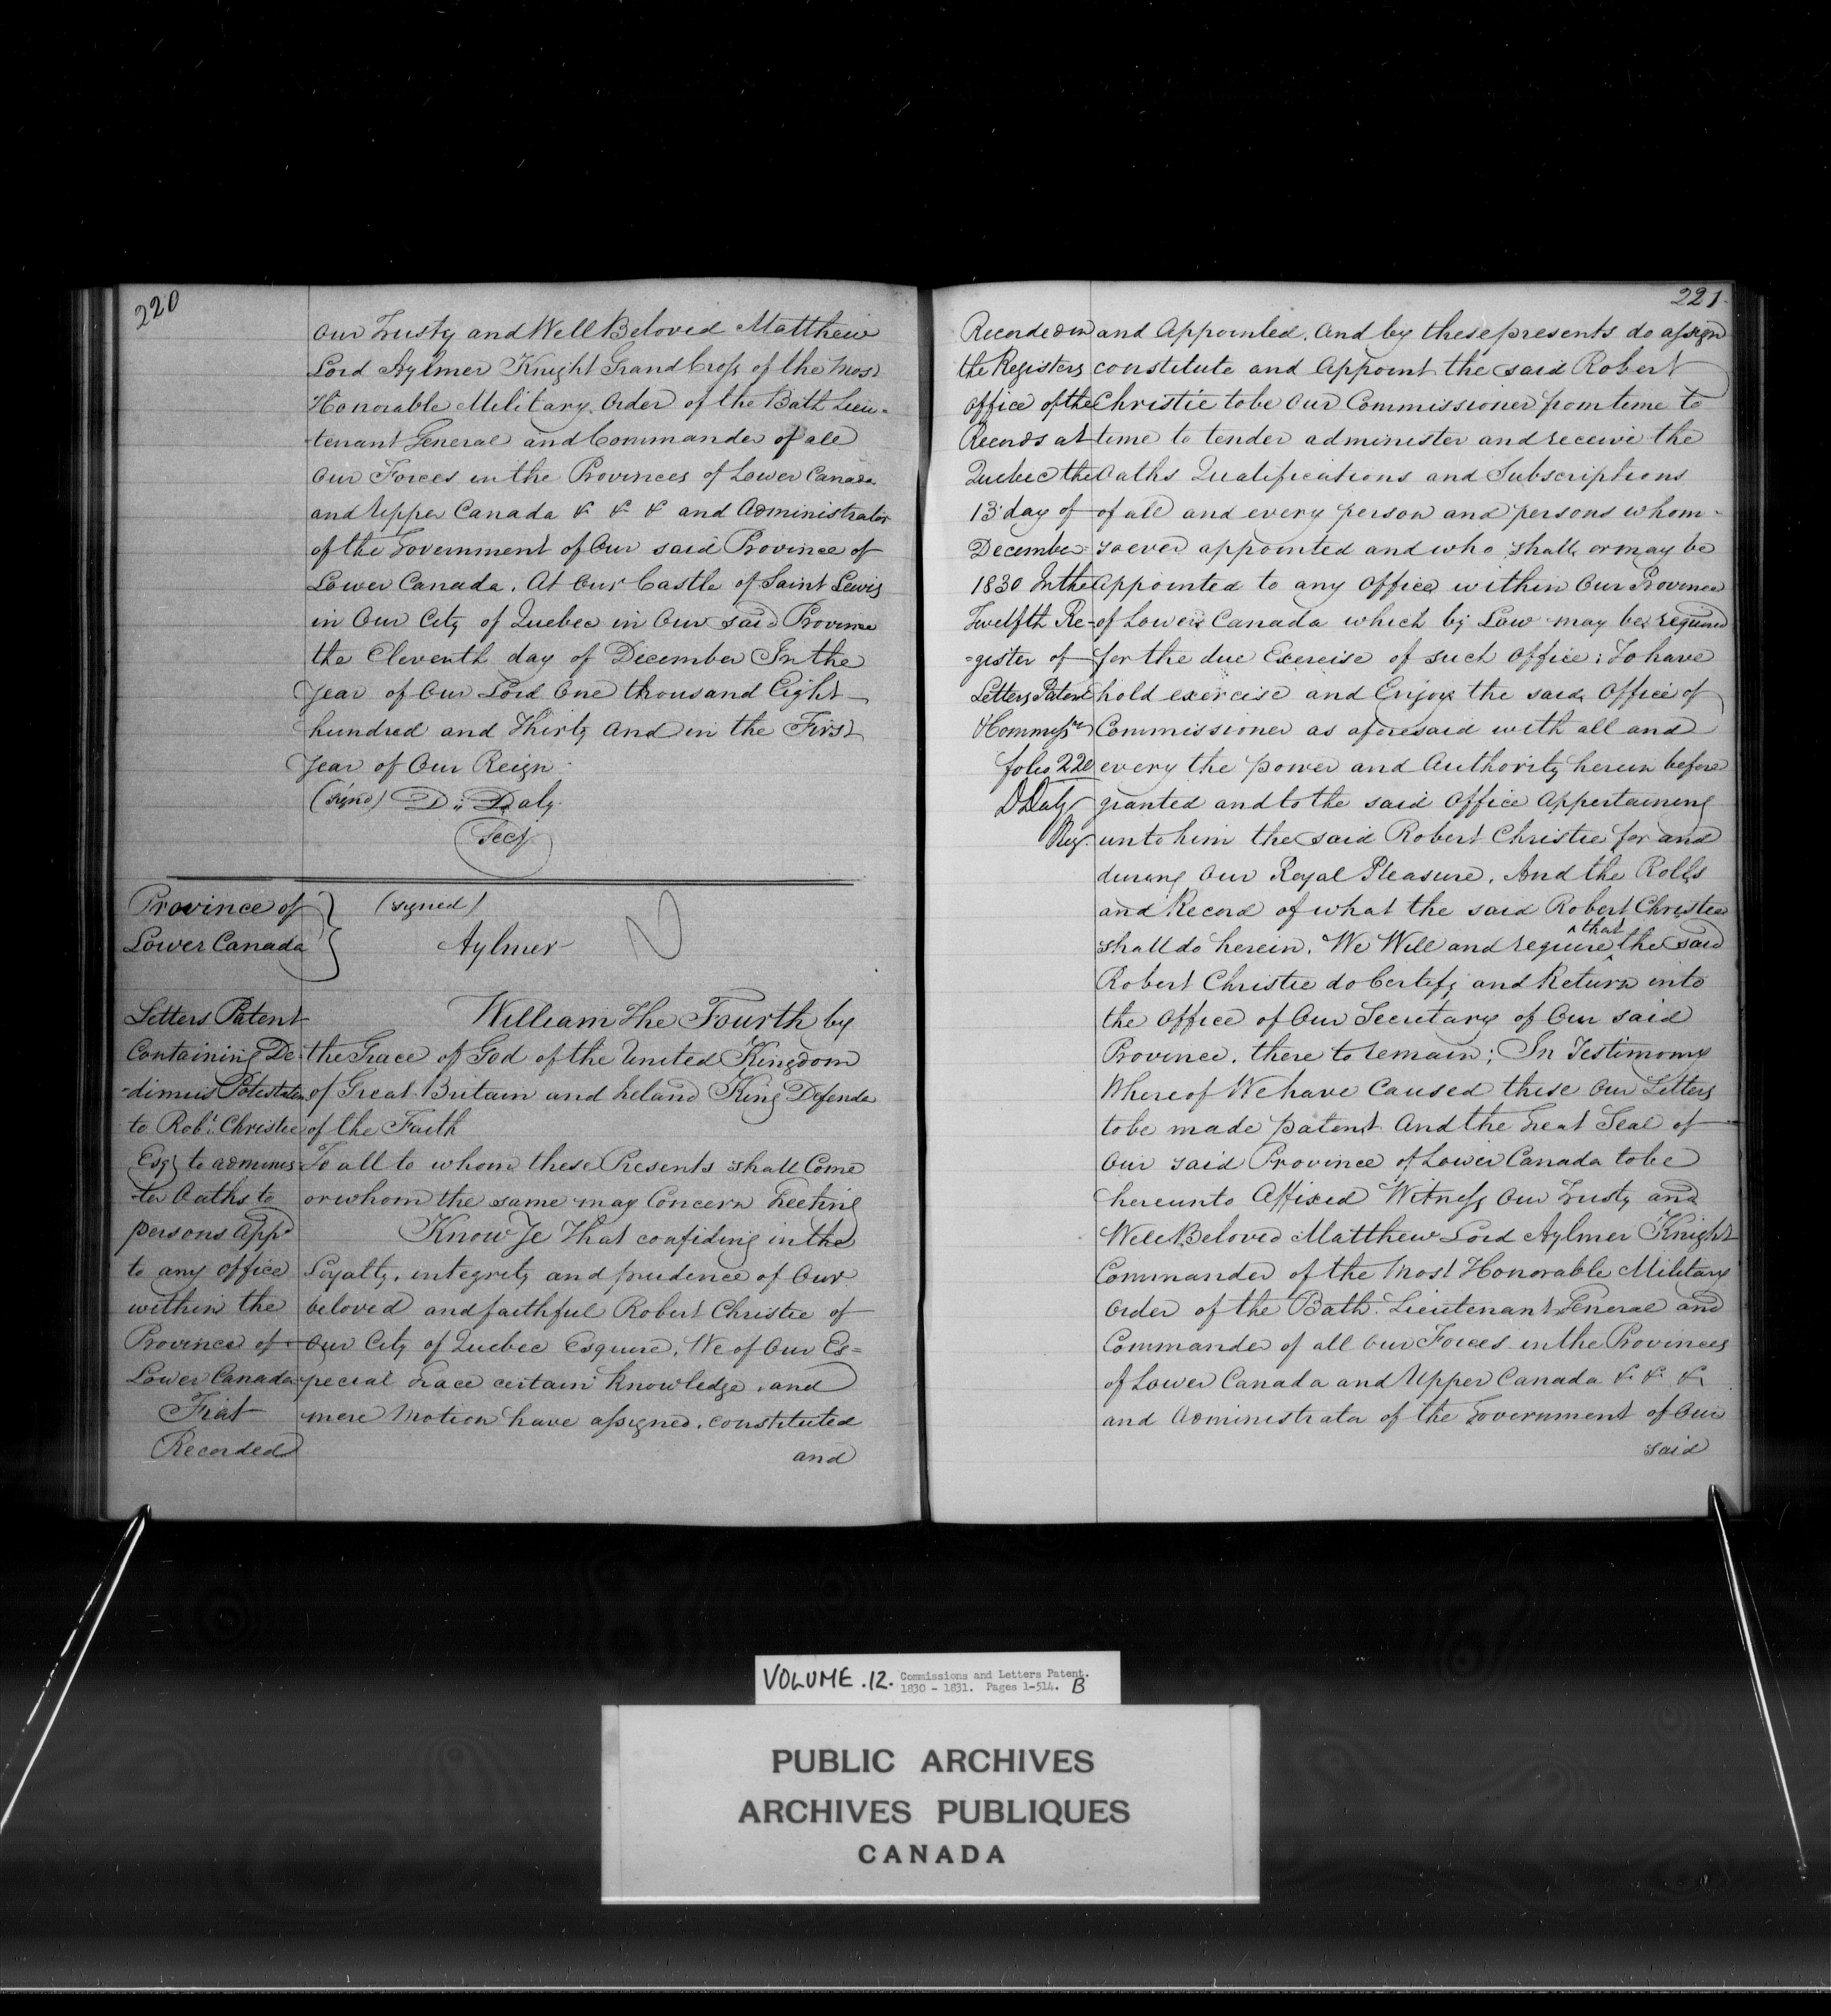 220
Our Trusty and Well Beloved Matthew
Lord Aylmer Knight Grand Cross of the Most
Honorable Military Order of the Bath Lieu-
-tenant General and Commander of all
Our Forces in the Provinces of Lower Canada
and Upper Canada & & & and Administrator
of the Government of Our said Province of
Lower Canada. At Our Castle of Saint Lewis
in Our City of Quebec in Our said Province
the Eleventh day of December In the
Year of Our Lord One thousand Eight
hundred and Thirty And in the First
Year of Our Reign.
(signd) D. Daly
Secy.
Province of
Lower Canada
(signed)
Aylmer
Letters Patent
Containing De-
-dimus Potestatem
to Robt. Christie
Esqr to adminis
-ter Oaths to
persons Appd
to any Office
within the
Province of
Lower Canada
Fiat
Recorded
William The Fourth by
the Grace of God of the United Kingdom
of Great Britain and Ireland King Defender
of the Faith
To all to whom these Presents shall Come
or whom the same may Concern Greeting
Know Ye That confiding in the
Loyalty, integrity and prudence of Our
beloved and faithful Robert Christie of
Our City of Quebec Esquire, We of Our Es=
pecial Grace certain Knowledge, and
mere Motion have assigned, constituted
and
221
Recorded in
the Registers
Office of the
Records at
Quebec the
13 day of
December
1830 In the
Twelfth Re-
=gister of
Letters Patent
& Commissns
folio 220
D Daly
Reg.
and Appointed, And by these presents do assign
constitute and Appoint the said Robert
Christie to be Our Commissioner from time to
time to tender administer and receive the
Oaths Qualifications and Subscriptions
of all and every person and persons whom-
soever appointed and who shall or may be
Appointed to any Office within Our Province
of Lower Canada which by Law may be required
for the due Exercise of such Office; To have
hold exercise and Enjoy the said Office of
Commissioner as aforesaid with all and
every the power and Authority herein before
granted and to the said Office Appertaining
unto him the said Robert Christie for and
during Our Royal Pleasure, And the Rolls
and Record of what the said Robert Christie
shall do herein, We Will and require that the said
Robert Christie do Certify and Return into
the Office of Our Secretary of Our said
Province, there to remain; In Testimony
Whereof We have Caused these Our Letters
to be made patent And the Great Seal of
Our said Province of Lower Canada to be
hereunto Affixed Witness Our Trusty and
Well Beloved Matthew Lord Aylmer Knight
Commander of the Most Honorable Military
Order of the Bath. Lieutenant General and
Commander of all Our Forces in the Provinces
of Lower Canada and Upper Canada &. &. &.
and Administrator of the Government of Our
said
VOLUME .12. Commissions and Letters Patent.
1830 - 1831. Pages 1-514. B
PUBLIC ARCHIVES
ARCHIVES PUBLIQUES
CANADA